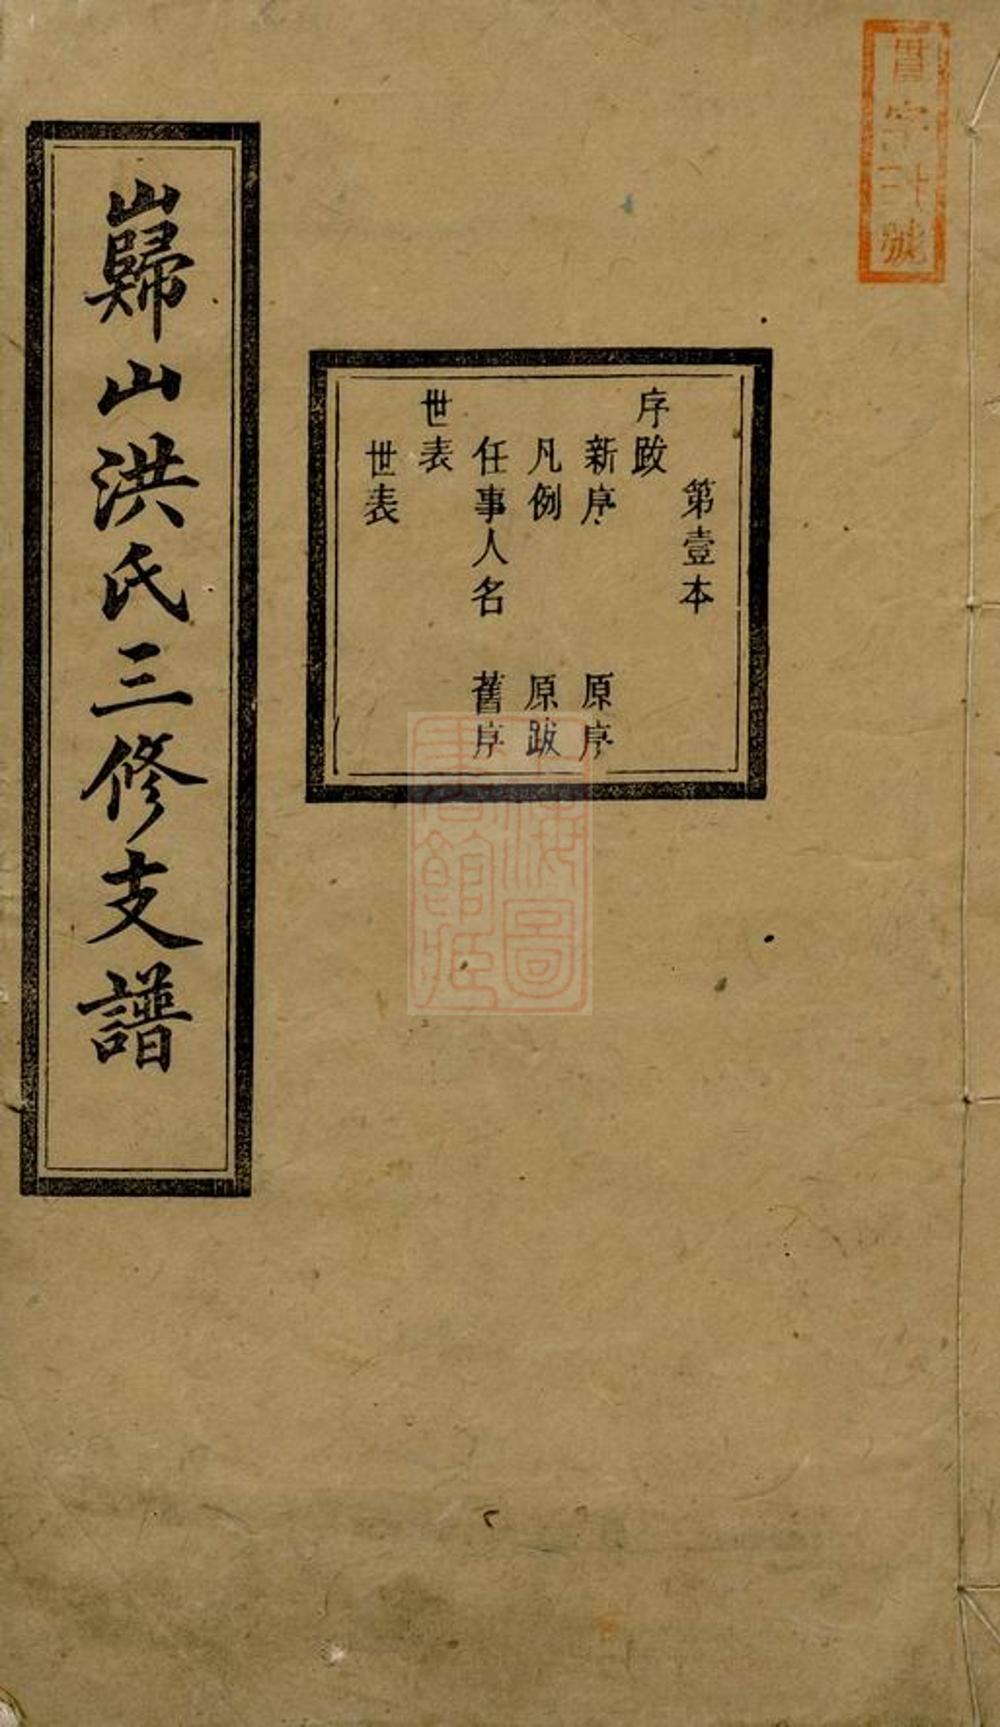 字號
第壹本
序跋
新序 原序
凡例 原跋
任事人名 舊序
世表
世表
巋山洪氏三修支譜
上海圖
書館藏